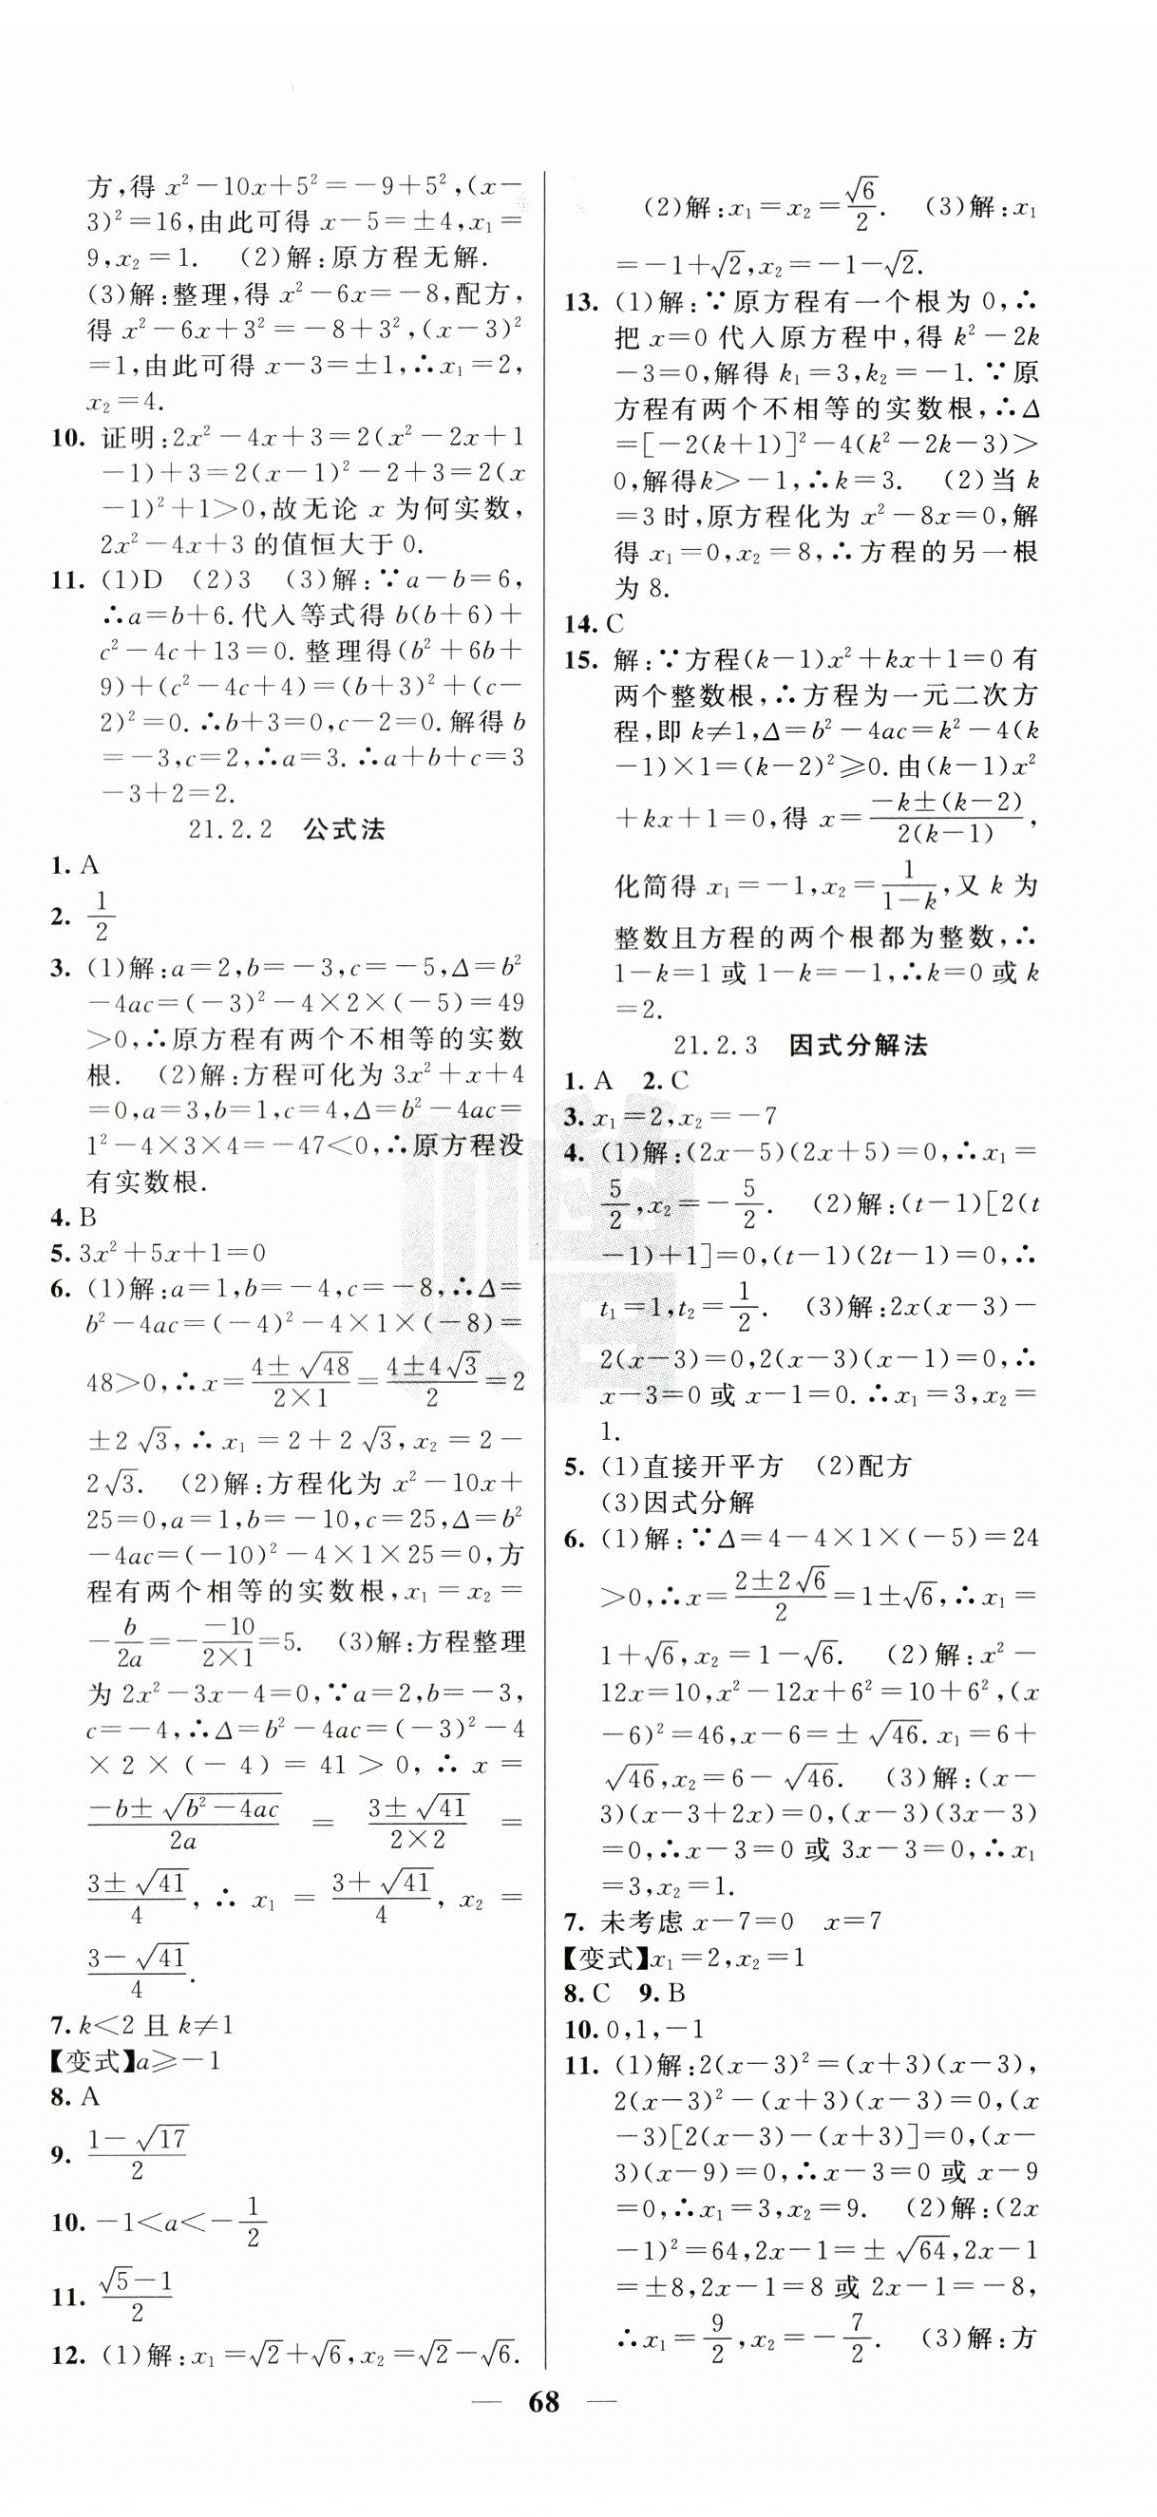 方,得 x²－10x＋5²＝－9＋5²,(x－
3)²＝16,由此可得 x－5＝±4,x₁＝
9,x₂＝1. (2)解:原方程无解.
(3)解:整理,得 x²－6x＝－8,配方,
得 x²－6x＋3²＝－8＋3²,(x－3)²
＝1,由此可得 x－3＝±1,∴x₁＝2,
x₂＝4.
10. 证明:2x²－4x＋3＝2(x²－2x＋1
－1)＋3＝2(x－1)²－2＋3＝2(x
－1)²＋1>0,故无论 x 为何实数,
2x²－4x＋3 的值恒大于 0.
11. (1)D (2)3 (3)解:∵a－b＝6,
∴a＝b＋6.代入等式得 b(b＋6)＋
c²－4c＋13＝0.整理得(b²＋6b＋
9)＋(c²－4c＋4)＝(b＋3)²＋(c－
2)²＝0.∴b＋3＝0,c－2＝0.解得 b
＝－3,c＝2,∴a＝3.∴a＋b＋c＝3
－3＋2＝2.
21.2.2 公式法
1. A
2. 1/2
3. (1)解:a＝2,b＝－3,c＝－5,Δ＝b²
－4ac＝(－3)²－4×2×(－5)＝49
>0,∴原方程有两个不相等的实数
根. (2)解:方程可化为 3x²＋x＋4
＝0,a＝3,b＝1,c＝4,Δ＝b²－4ac＝
1²－4×3×4＝－47<0,∴原方程没
有实数根.
4. B
5. 3x²＋5x＋1＝0
6. (1)解:a＝1,b＝－4,c＝－8,∴Δ＝
b²－4ac＝(－4)²－4×1×(－8)＝
48>0,∴x＝(4±√48)/(2×1)＝(4±4√3)/2＝2
±2√3,∴x₁＝2＋2√3,x₂＝2－
2√3. (2)解:方程化为 x²－10x＋
25＝0,a＝1,b＝－10,c＝25,Δ＝b²
－4ac＝(－10)²－4×1×25＝0,方
程有两个相等的实数根,x₁＝x₂＝
－b/2a＝－(－10)/(2×1)＝5. (3)解:方程整理
为 2x²－3x－4＝0,∵a＝2,b＝－3,
c＝－4,∴Δ＝b²－4ac＝(－3)²－4
×2×(－4)＝41>0,∴x＝
(－b±√(b²－4ac))/2a＝(3±√41)/(2×2)＝
(3±√41)/4,∴x₁＝(3＋√41)/4,x₂＝
(3－√41)/4.
7. k<2 且 k≠1
【变式】a≥－1
8. A
9. (1－√17)/2
10. －1<a<－1/2
11. (√5－1)/2
12. (1)解:x₁＝√2＋√6,x₂＝√2－√6.
(2)解:x₁＝x₂＝√6/2. (3)解:x₁
＝－1＋√2,x₂＝－1－√2.
13. (1)解:∵原方程有一个根为 0,∴
把 x＝0 代入原方程中,得 k²－2k
－3＝0,解得 k₁＝3,k₂＝－1.∵原
方程有两个不相等的实数根,∴Δ
＝[－2(k＋1)]²－4(k²－2k－3)>
0,解得k>－1,∴k＝3. (2)当 k
＝3 时,原方程化为 x²－8x＝0,解
得 x₁＝0,x₂＝8,∴方程的另一根
为 8.
14. C
15. 解:∵方程(k－1)x²＋kx＋1＝0 有
两个整数根,∴方程为一元二次方
程,即 k≠1,Δ＝b²－4ac＝k²－4(k
－1)×1＝(k－2)²≥0.由(k－1)x²
＋kx＋1＝0,得 x＝(－k±(k－2))/(2(k－1)),
化简得 x₁＝－1,x₂＝1/(1－k),又 k 为
整数且方程的两个根都为整数,∴
1－k＝1 或 1－k＝－1,∴k＝0 或 k
＝2.
21.2.3 因式分解法
1. A 2. C
3. x₁＝2,x₂＝－7
4. (1)解:(2x－5)(2x＋5)＝0,∴x₁＝
5/2,x₂＝－5/2. (2)解:(t－1)[2(t
－1)＋1]＝0,(t－1)(2t－1)＝0,∴
t₁＝1,t₂＝1/2. (3)解:2x(x－3)－
2(x－3)＝0,2(x－3)(x－1)＝0,∴
x－3＝0 或 x－1＝0.∴x₁＝3,x₂＝
1.
5. (1)直接开平方 (2)配方
(3)因式分解
6. (1)解:∵Δ＝4－4×1×(－5)＝24
>0,∴x＝(2±2√6)/2＝1±√6,∴x₁＝
1＋√6,x₂＝1－√6. (2)解:x²－
12x＝10,x²－12x＋6²＝10＋6²,(x
－6)²＝46,x－6＝±√46.x₁＝6＋
√46,x₂＝6－√46. (3)解:(x－
3)(x－3＋2x)＝0,(x－3)(3x－3)
＝0,∴x－3＝0 或 3x－3＝0,∴x₁
＝3,x₂＝1.
7. 未考虑 x－7＝0 x＝7
【变式】x₁＝2,x₂＝1
8. C 9. B
10. 0,1,－1
11. (1)解:2(x－3)²＝(x＋3)(x－3),
2(x－3)²－(x＋3)(x－3)＝0,(x
－3)[2(x－3)－(x＋3)]＝0,(x－
3)(x－9)＝0,∴x－3＝0 或 x－9
＝0,∴x₁＝3,x₂＝9. (2)解:(2x
－1)²＝64,2x－1＝±√64,2x－1
＝±8,2x－1＝8 或 2x－1＝－8,
∴x₁＝9/2,x₂＝－7/2. (3)解:方
— 68 —